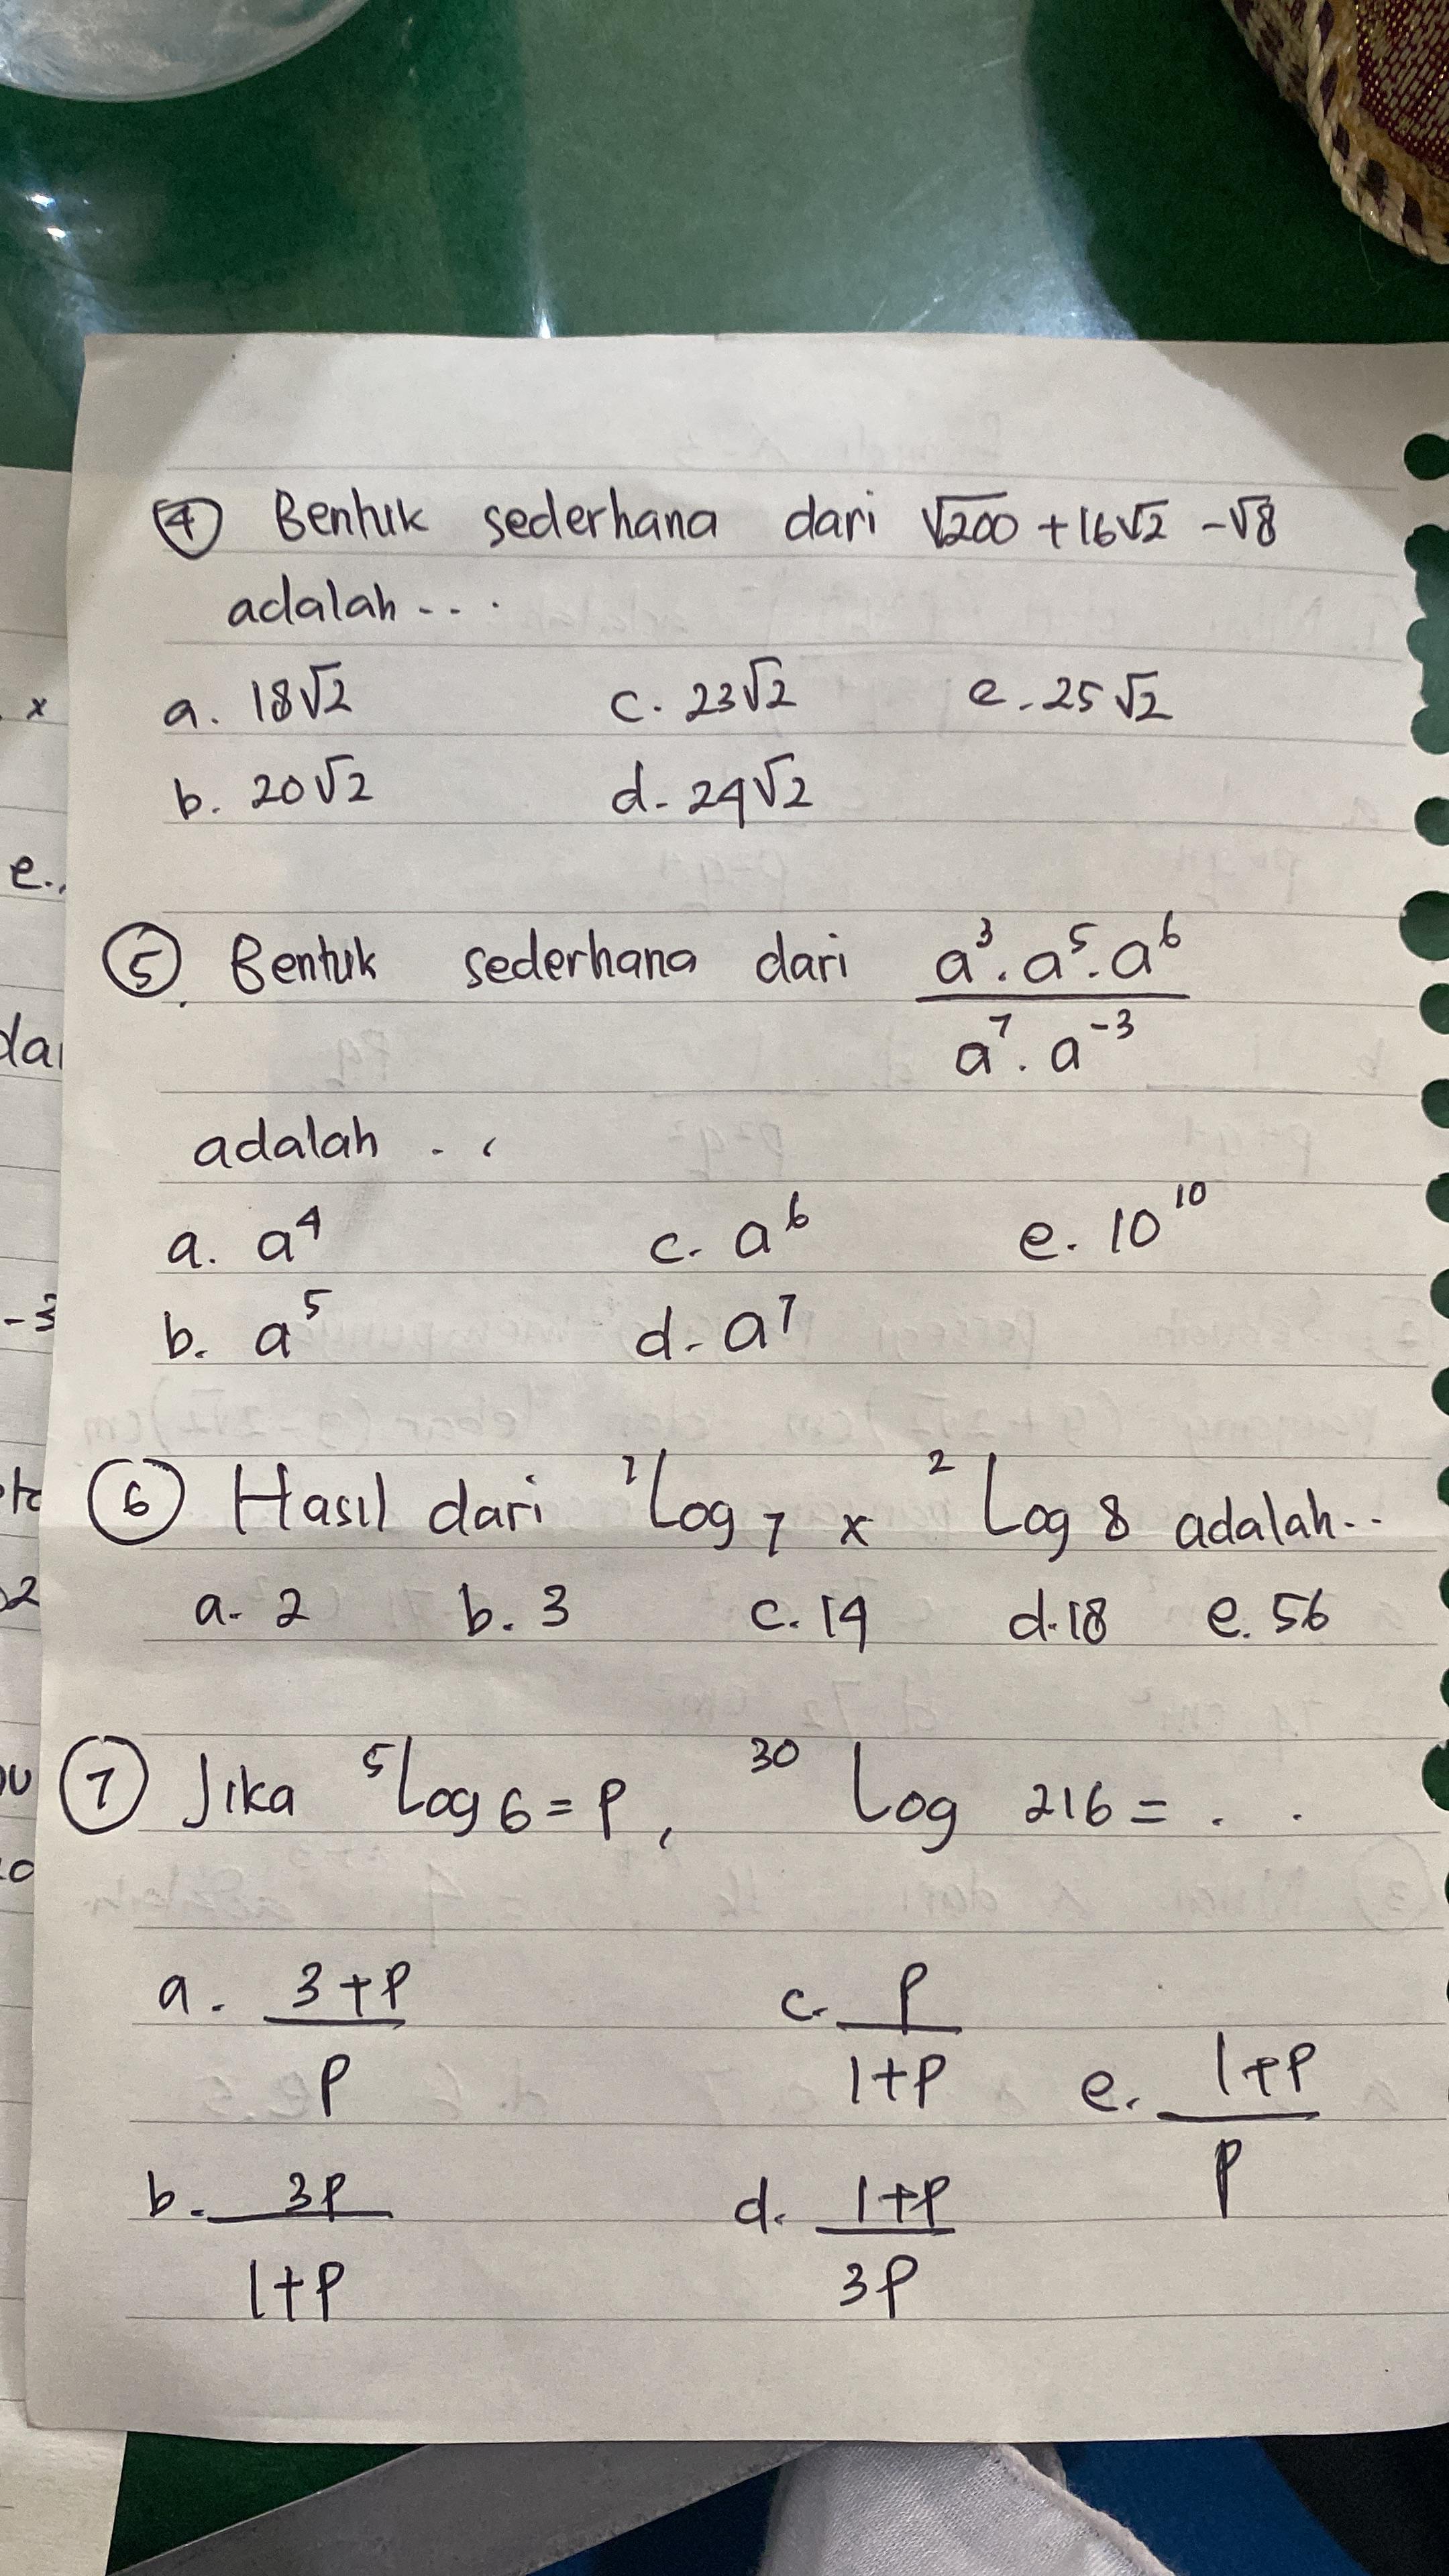 ④ Bentuk sederhana dari √200 + 16√2 - √8
adalah ...
a. 18√2 c. 23√2 e. 25√2
b. 20√2 d. 24√2
⑤ Bentuk sederhana dari a³ . a⁵ . a⁶ / a⁷ . a⁻³
adalah . .
a. a⁴ c. a⁶ e. 10¹⁰
b. a⁵ d. a⁷
⑥ Hasil dari ⁷Log 7 x ² Log 8 adalah..
a. 2 b. 3 c. 14 d. 18 e. 56
⑦ Jika ⁵Log 6 = P, ³⁰ Log 216 = . .
a. 3+P / P c. P / 1+P e. 1+P / P
b. 3P / 1+P d. 1+P / 3P
x
e.
-3